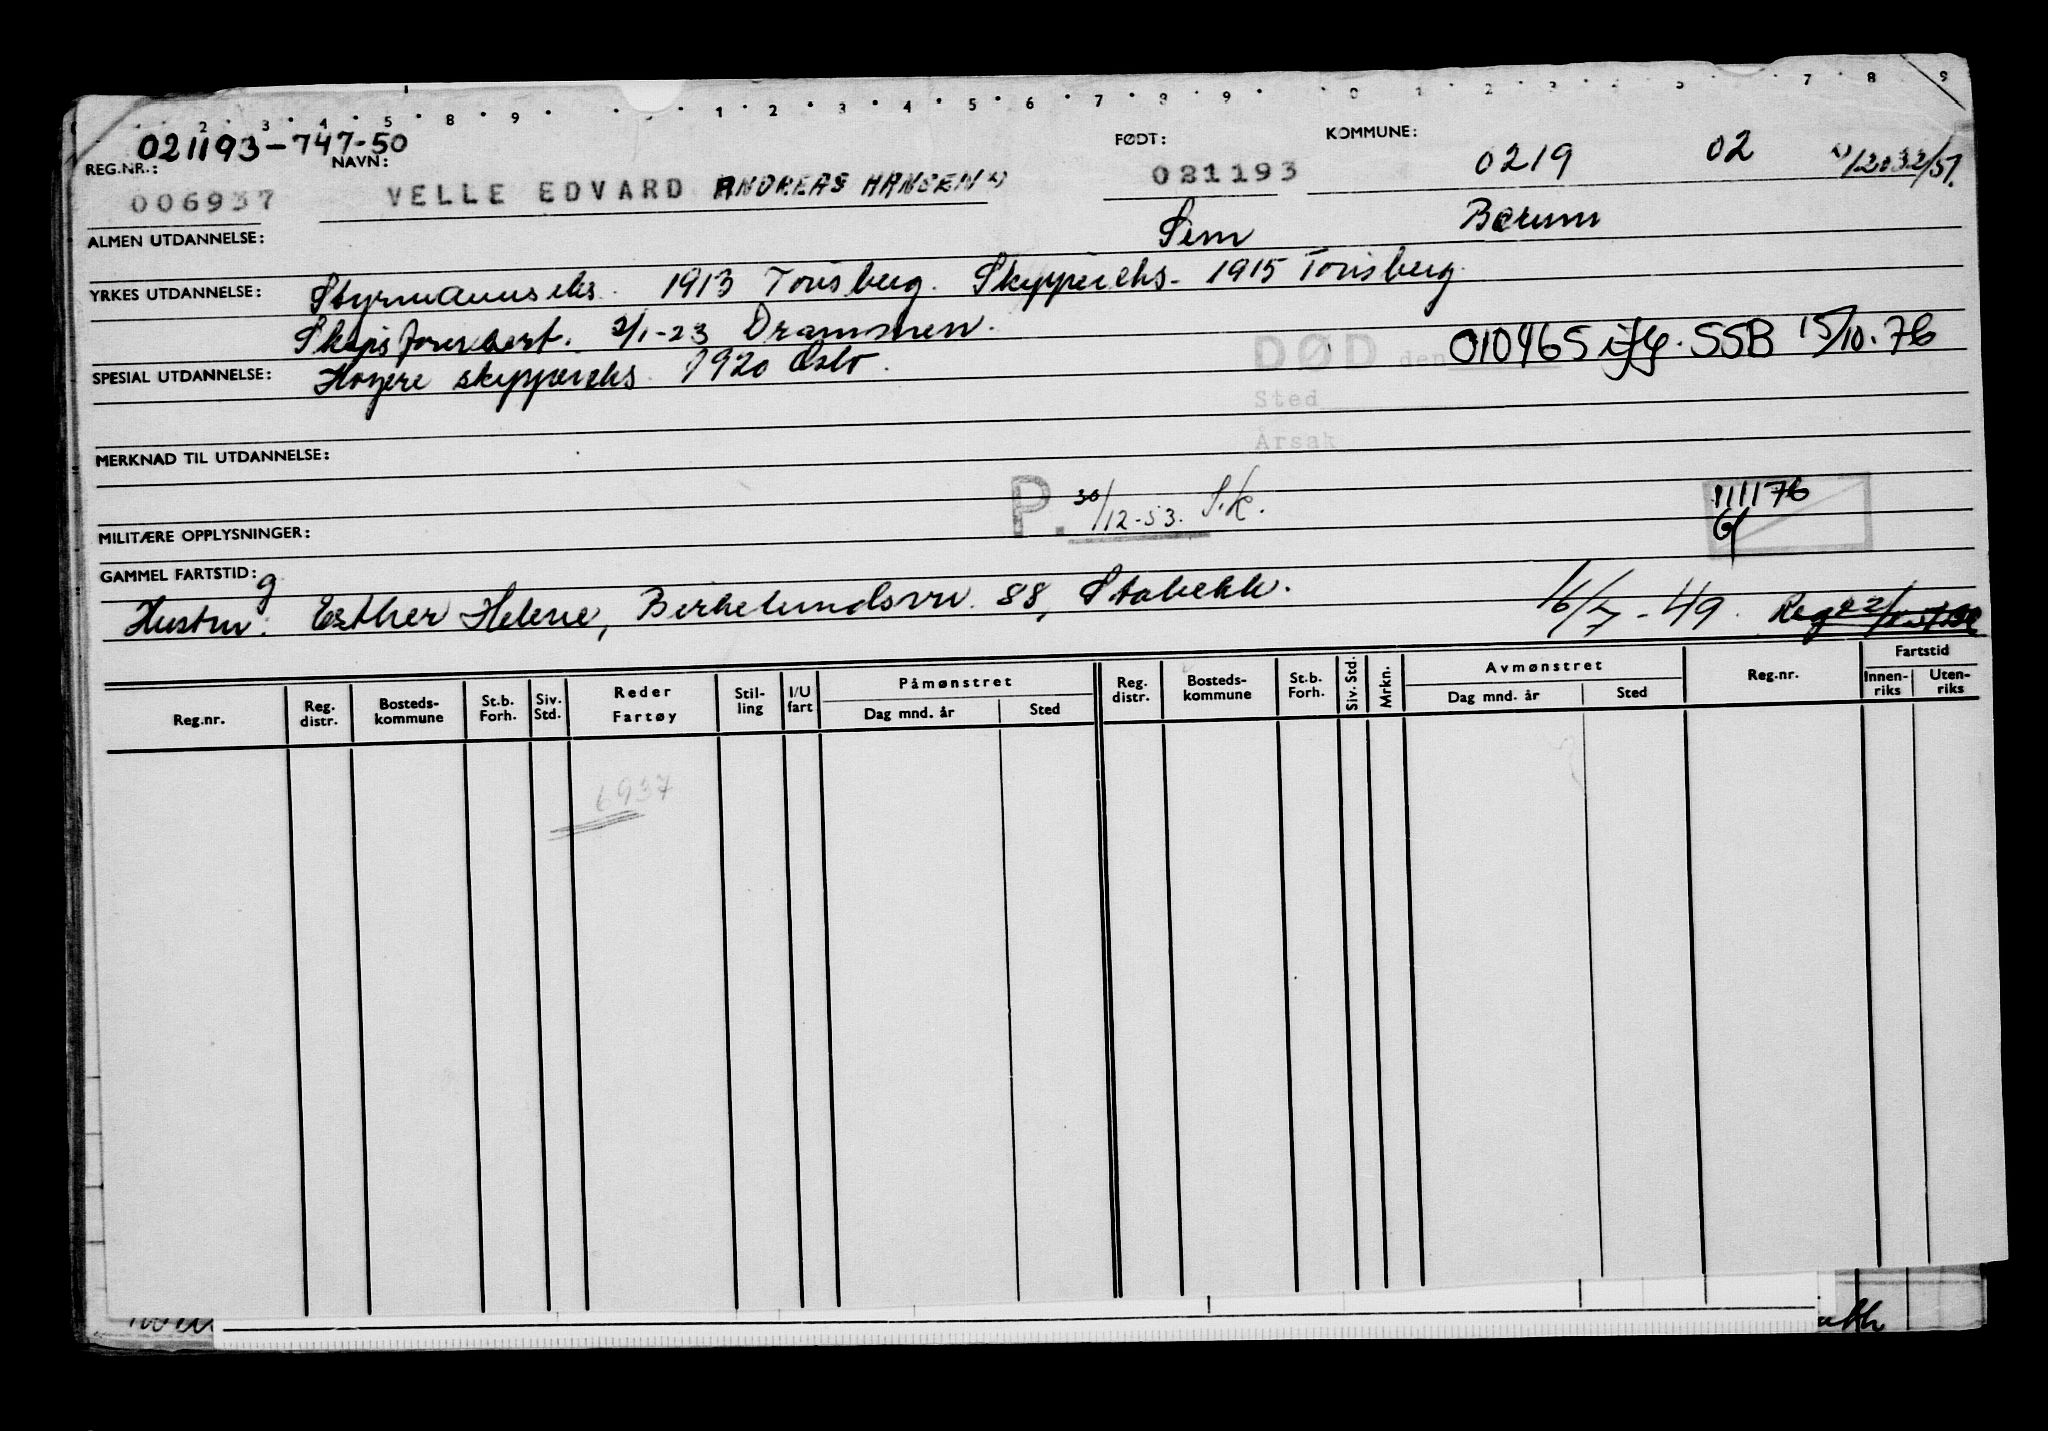 2 3 4 5 8 9 1 2 3 4 5 6 7 8 9 0 1 2 3 7 8 9
021193-747-50
REG.NR.: NAVN: FØDT: KOMMUNE:
006937 VELLE EDVARD ANDREAS HANSEN x) 021193 0219 02 x) 12032/51.
ALMEN UTDANNELSE: Sem Bærum
YRKES UTDANNELSE: Styrmannseks. 1913 Tønsberg. Skippereks. 1915 Tønsberg.
Skipsførerbert. 2/1-23 Drammen.
DØD den 010465 iflg. SSB 15/10.76
SPESIAL UTDANNELSE: Høyere skippereks. 1920 Oslo.
Sted
Årsak
MERKNAD TIL UTDANNELSE:
P. 30/12-53. S.k. 111176
MILITÆRE OPPLYSNINGER:
GAMMEL FARTSTID:
Hustru: Esther Helene, Birkelundsvn. 88, Stabekk. 16/7-49.
Reg.nr. Reg. distr. Bosteds-kommune St.b. Forh. Siv. Std. Reder Fartøy Stil-ling I/U fart Påmønstret Dag mnd. år Sted Reg. distr. Bosteds-kommune St.b. Forh. Siv. Std. Mrkn. Avmønstret Dag mnd. år Sted Reg.nr. Fartstid Innen-riks Uten-riks
6937